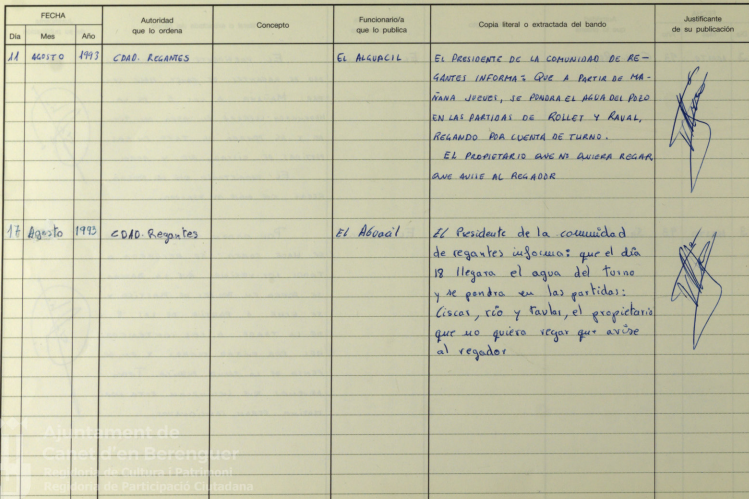 FECHA
Día Mes Año
Autoridad
que lo ordena
Concepto
Funcionario/a
que lo publica
Copia literal o extractada del bando
Justificante
de su publicación
11 AGOSTO 1993 CDAD. REGANTES EL ALGUACIL EL PRESIDENTE DE LA COMUNIDAD DE RE-
GANTES INFORMA: QUE A PARTIR DE MA-
ÑANA JUEVES, SE PONDRA EL AGUA DEL POZO
EN LAS PARTIDAS DE ROLLET Y RAVAL,
REGANDO POR CUENTA DE TURNO.
EL PROPIETARIO QUE NO QUIERA REGAR
QUE AVISE AL REGADOR
17 Agosto 1993 CDAD. Regantes El Aguacil El Presidente de la comunidad
de regantes informa: que el día
18 llegara el agua del turno
y se pondra en las partidas:
Ciscar, río y Taulas, el propietario
que no quiera regar que avise
al regador
Ajuntament de
Canet d'en Berenguer
Regidoria de Cultura i Patrimoni
Regidoria de Participació Ciutadana